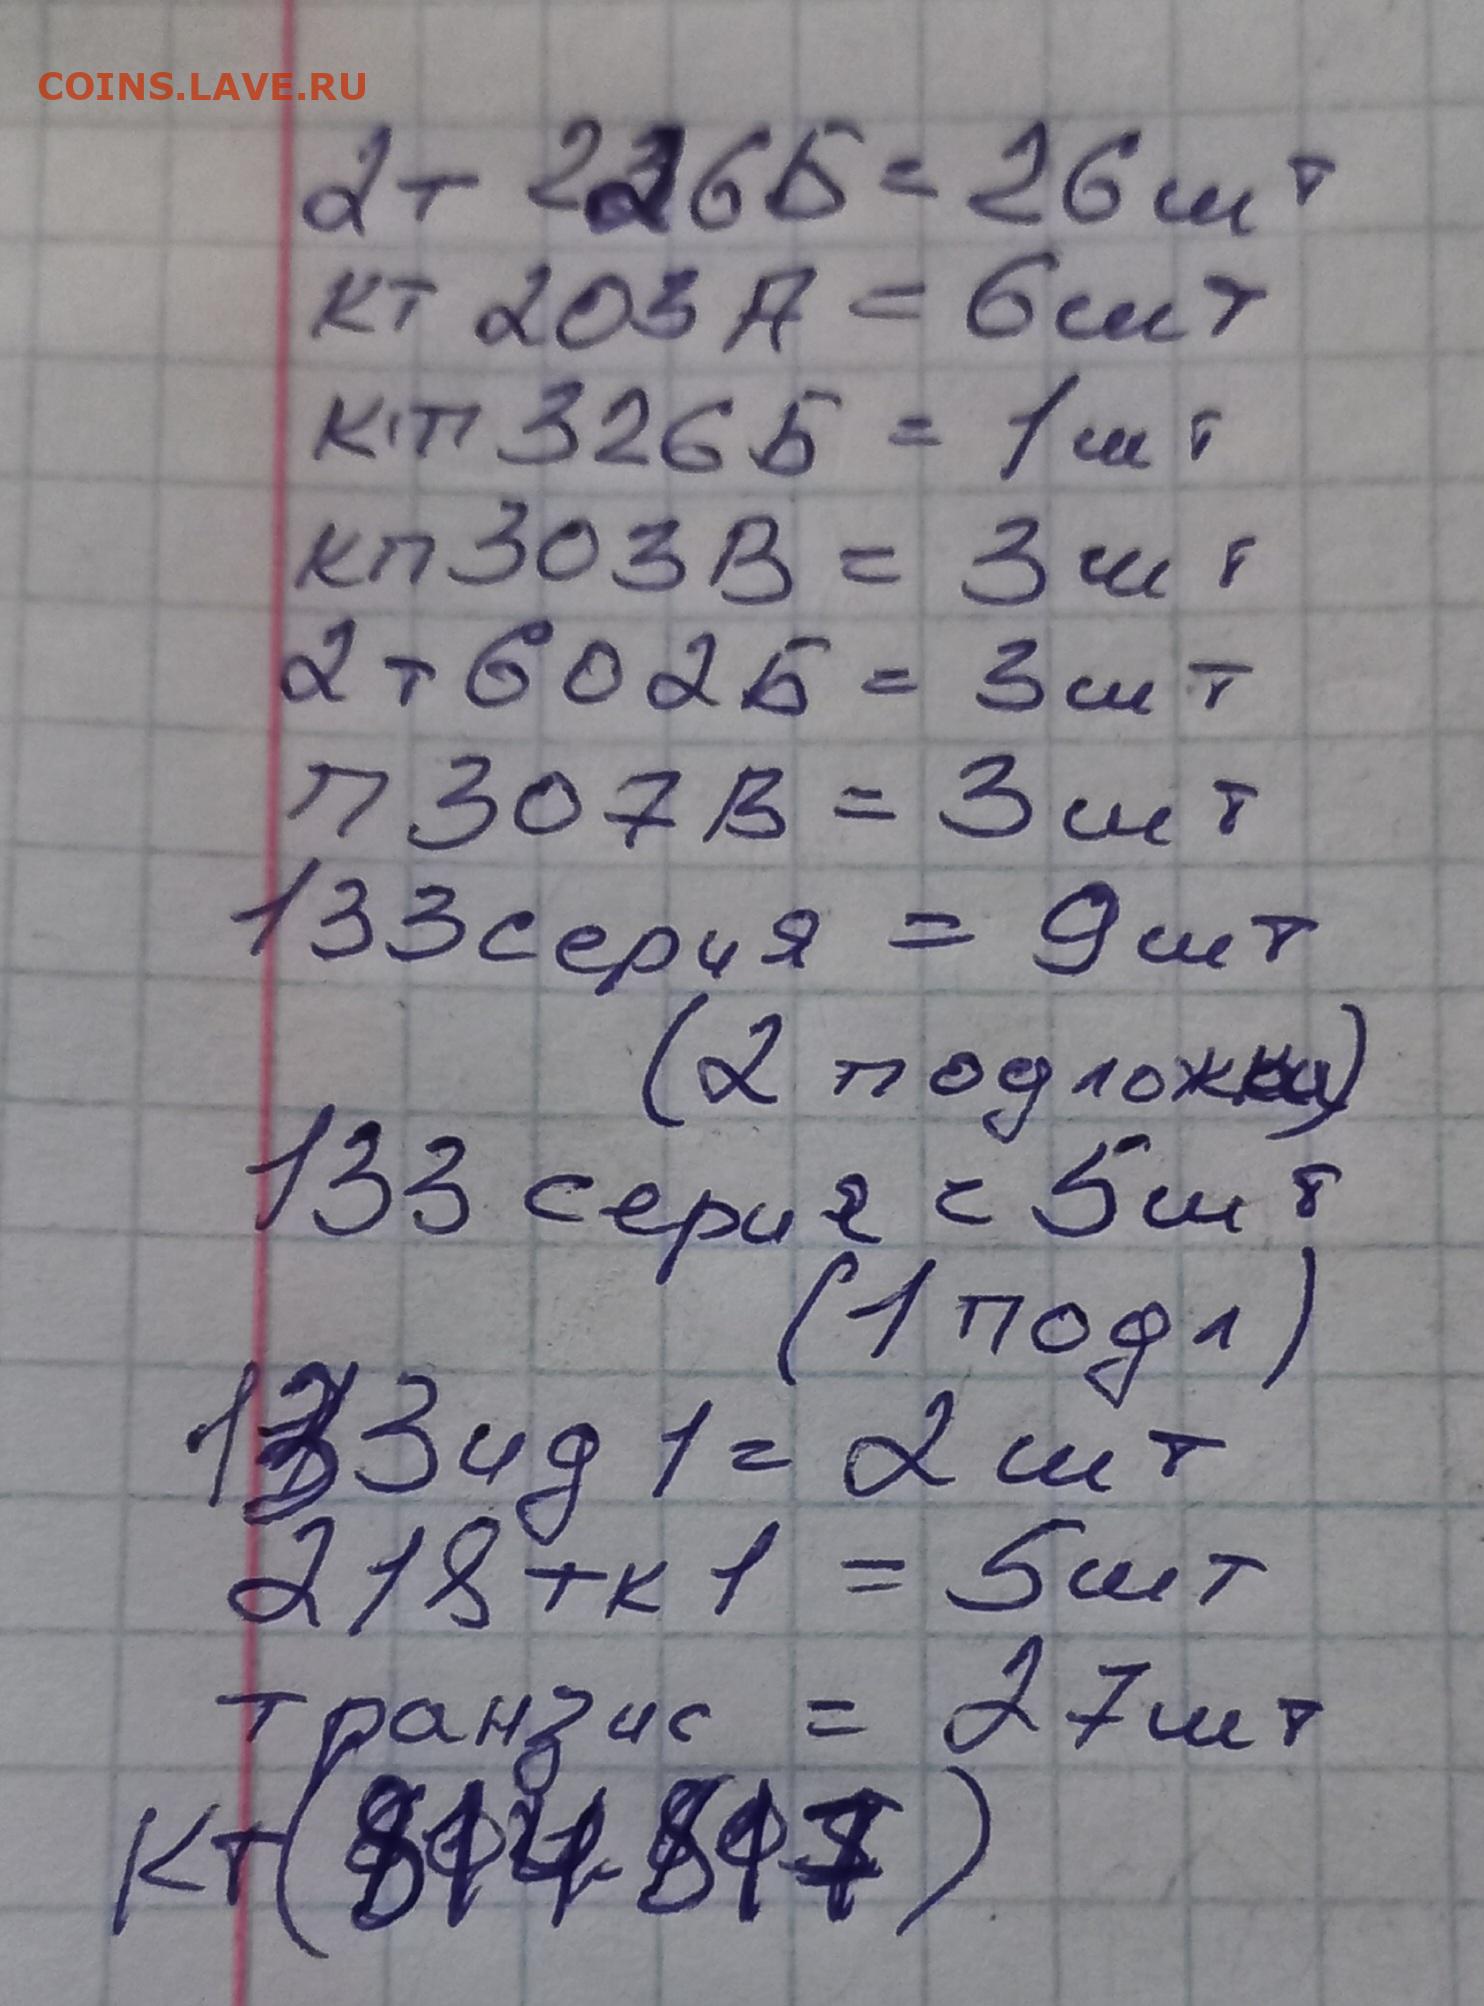 COINS.LAVE.RU
2т 2 6Б = 26шт
кт 203 А = 6шт
кт 326 Б = 1шт
кп 303 В = 3шт
2т 602 Б = 3шт
п 307 В = 3шт
133 серия = 9шт
(2 подложки)
133 серия = 5шт
(1 подл)
133 ид 1 = 2шт
218 тк 1 = 5шт
транзис = 27шт
Кт ( )